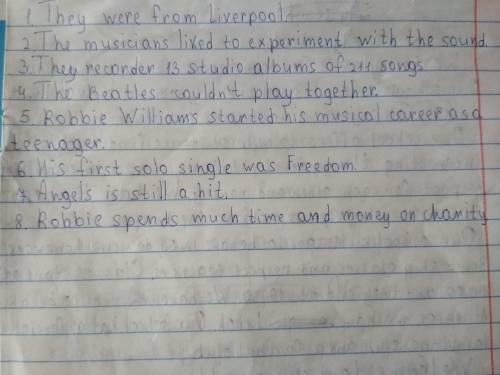 1. They were from Liverpool.
2. The musicians liked to experiment with the sound.
3. They recorder 13 studio albums of 211 songs.
4. The Beatles couldn't play together.
5. Robbie Williams started his musical career as a
teenager.
6. His first solo single was Freedom.
7. Angels is still a hit.
8. Robbie spends much time and money on charity